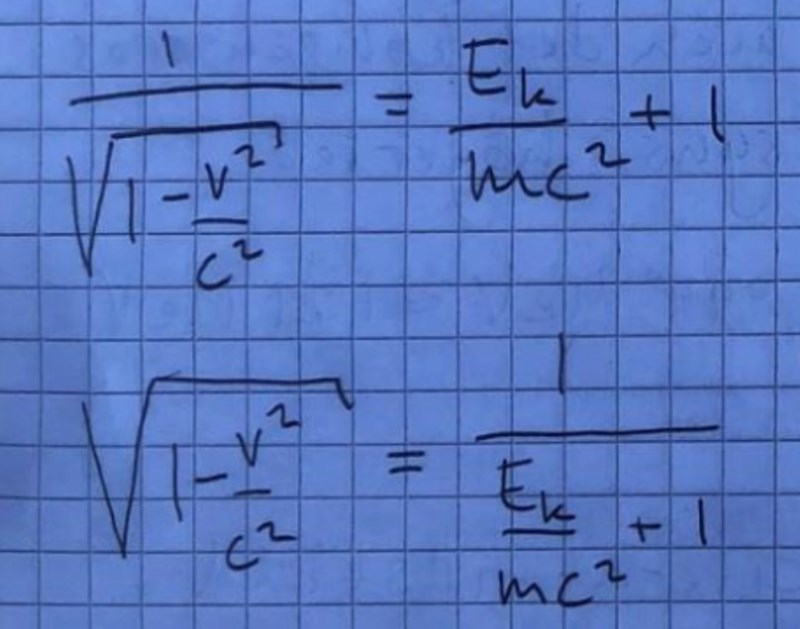 1/√(1 - v²/c²) = E_k/mc² + 1
√(1 - v²/c²) = 1/(E_k/mc² + 1)